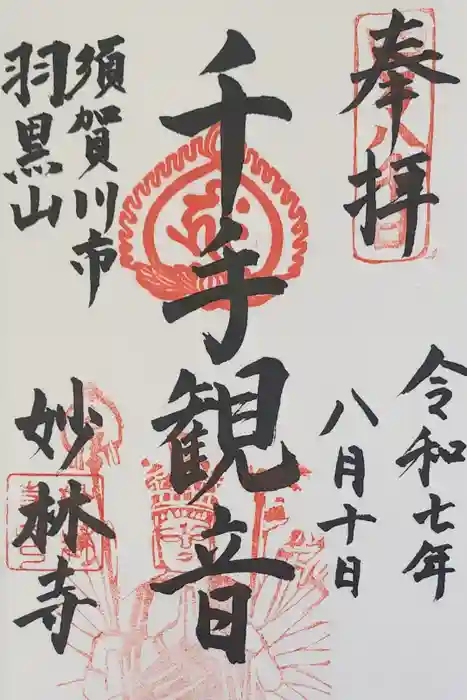 奉拝
令和七年
八月十日
千手観音
須賀川市
羽黒山
妙林寺